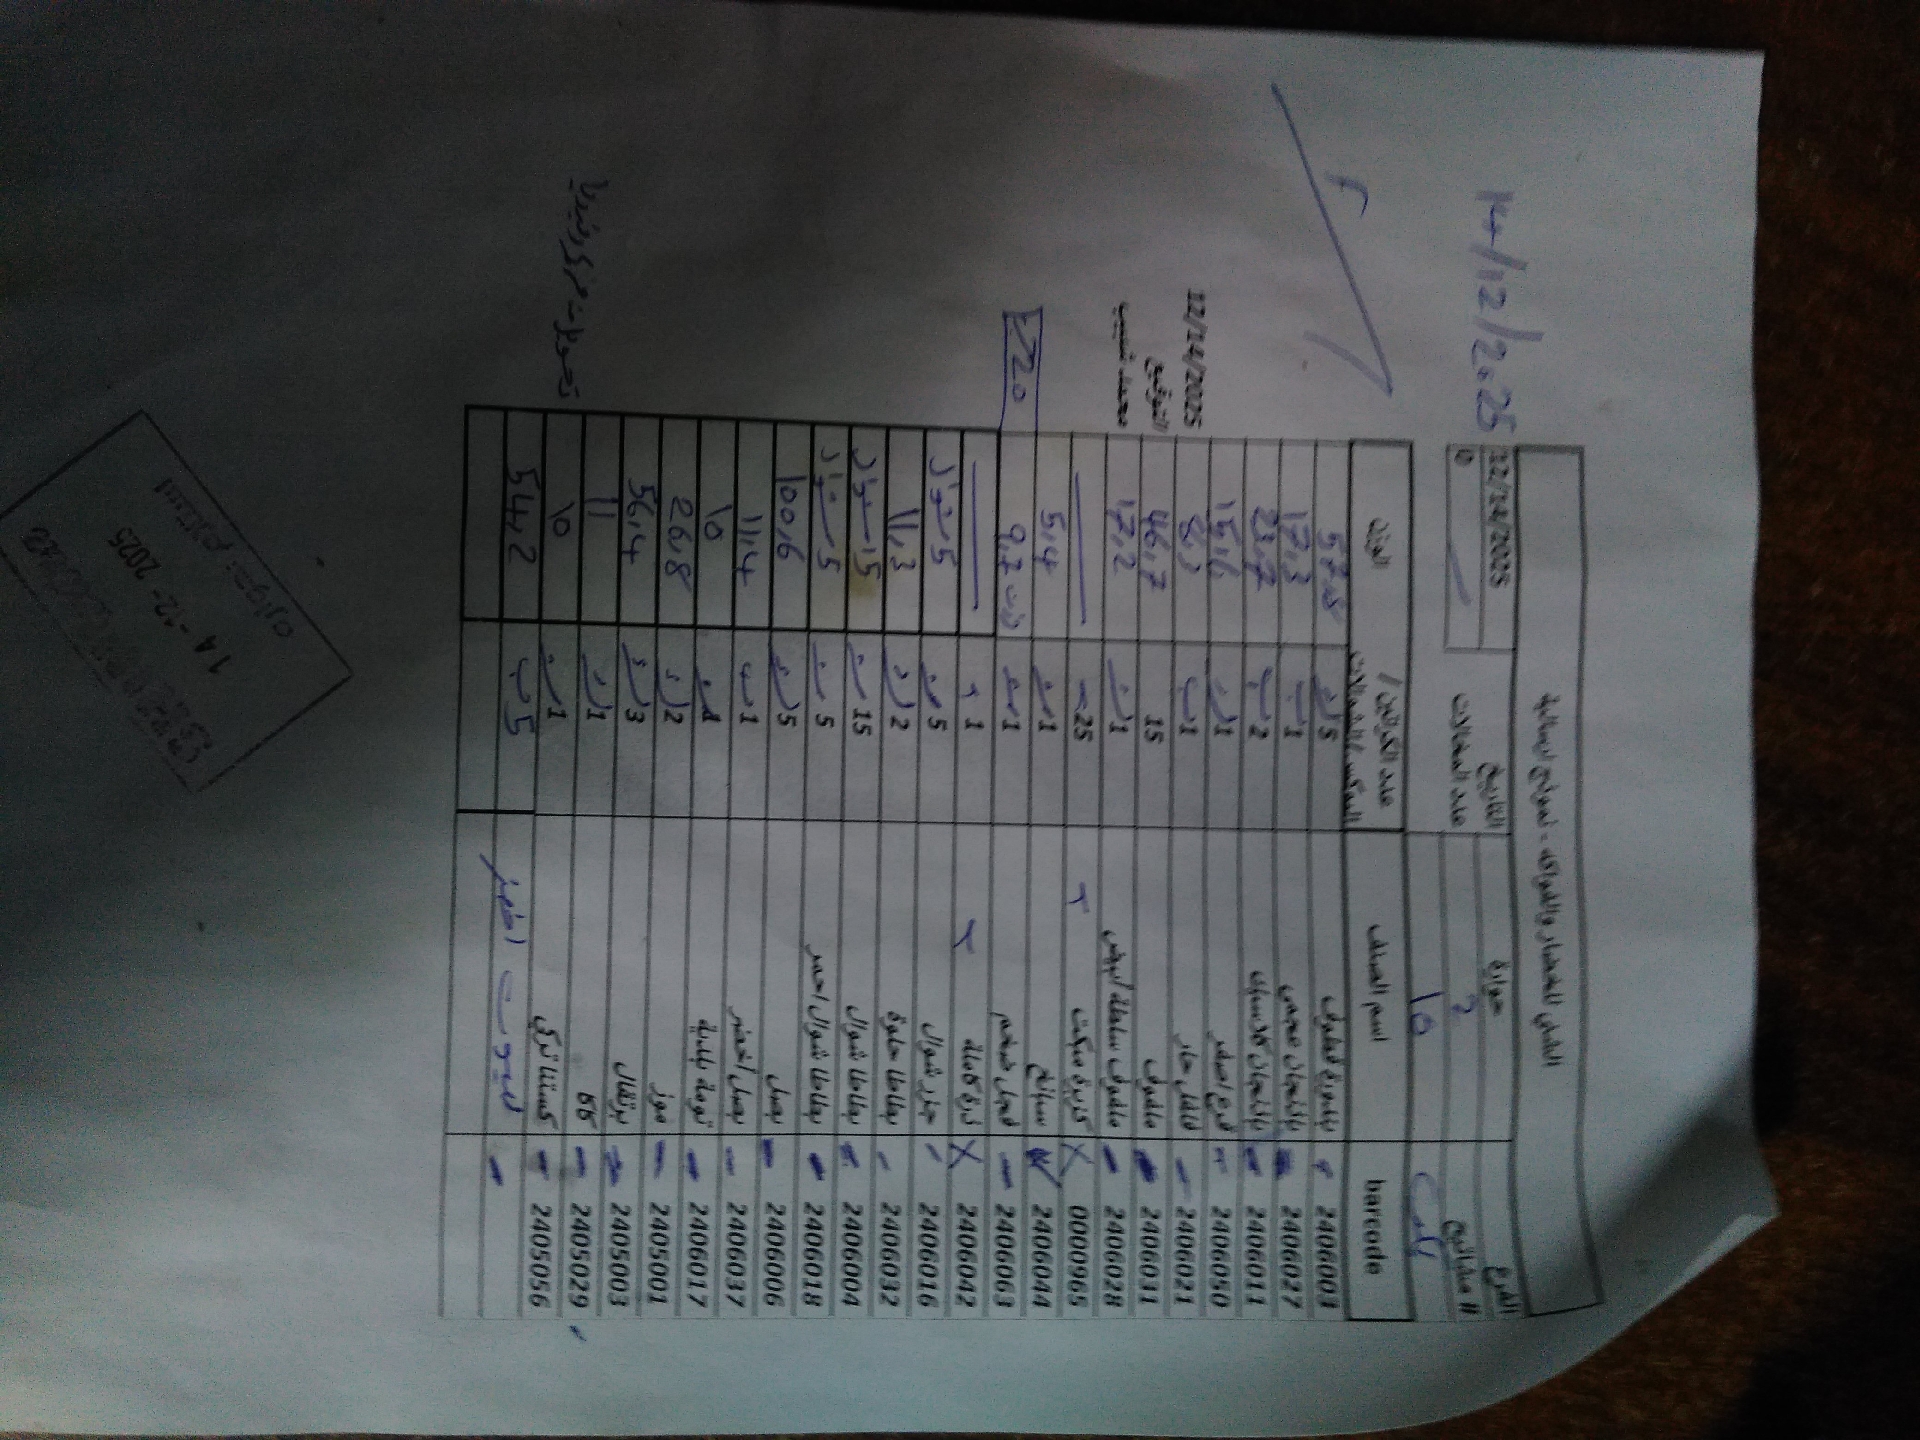 14/12/2025
الشني للخضار والفواكه - نموذج ارسالية
الفرع حوارة التاريخ 12/14/2025
# مشاتيح عدد المشالات 0
barcode اسم الصنف عدد الكراتين / البوكس / الشوالات الوزن
2406001 بندورة قطوف 5 57.8
2406027 باذنجان عجمي 1 17.3
2406011 باذنجان كلاسيك 2 23.7
2406050 قرع اصفر 1 15.6
2406021 فلفل حار 1 8.2
2406031 ملفوف 15 46.7
2406028 ملفوف سلطة ابيض 1 17.2
0000965 كزبرة مبكت 25
2406044 سبانخ 1 5.4
2406063 فجل ضخم 1 9.7
2406042 ذرة كاملة 1
2406016 جزر شوال 5 5 شوال
2406032 بطاطا حلوة 2 11.3
2406004 بطاطا شوال 15 15 شوال
2406018 بطاطا شوال احمر 5 5 شوال
2406006 بصل 5 100.6
2406037 بصل أخضر 1 11.4
2406017 ثومة بلدية 1 10
2405001 موز 2 26.8
2405003 برتقال 3 56.4
2405029 كاكا 1 11
2405056 كستنا تركي 1 10
اخضر 5 54.2
720
12/14/2025
التوقيع
محمد شبيب
استلام حوارة
14 -12- 2025